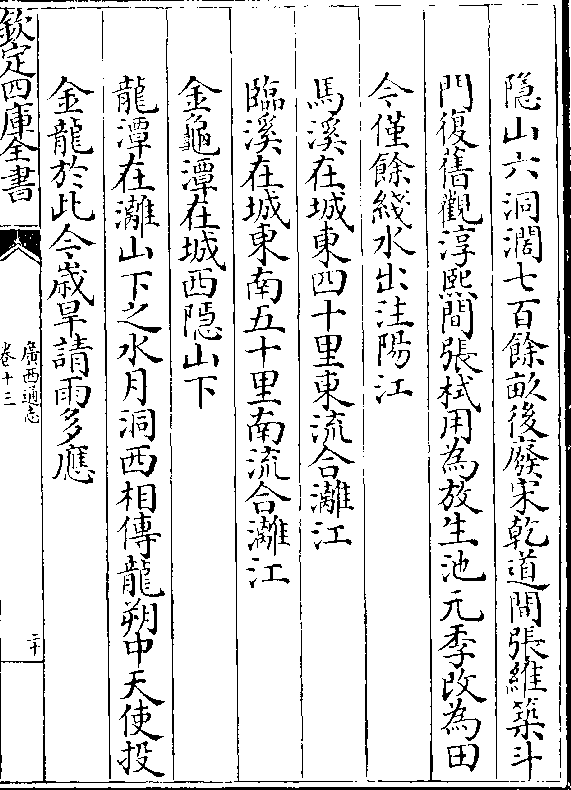 隱山六洞濶七百餘畝後廢宋乾道間張維築斗
門復舊觀淳熙間張栻用為放生池元季改為田
今僅餘綫水出注陽江
馬溪在城東四十里東流合灕江
臨溪在城東南五十里南流合灕江
金龜潭在城西隱山下
龍潭在灕山下之水月洞西相傳龍朔中天使投
金龍於此今歲旱請雨多應
欽定四庫全書
廣西通志
卷十三
二十